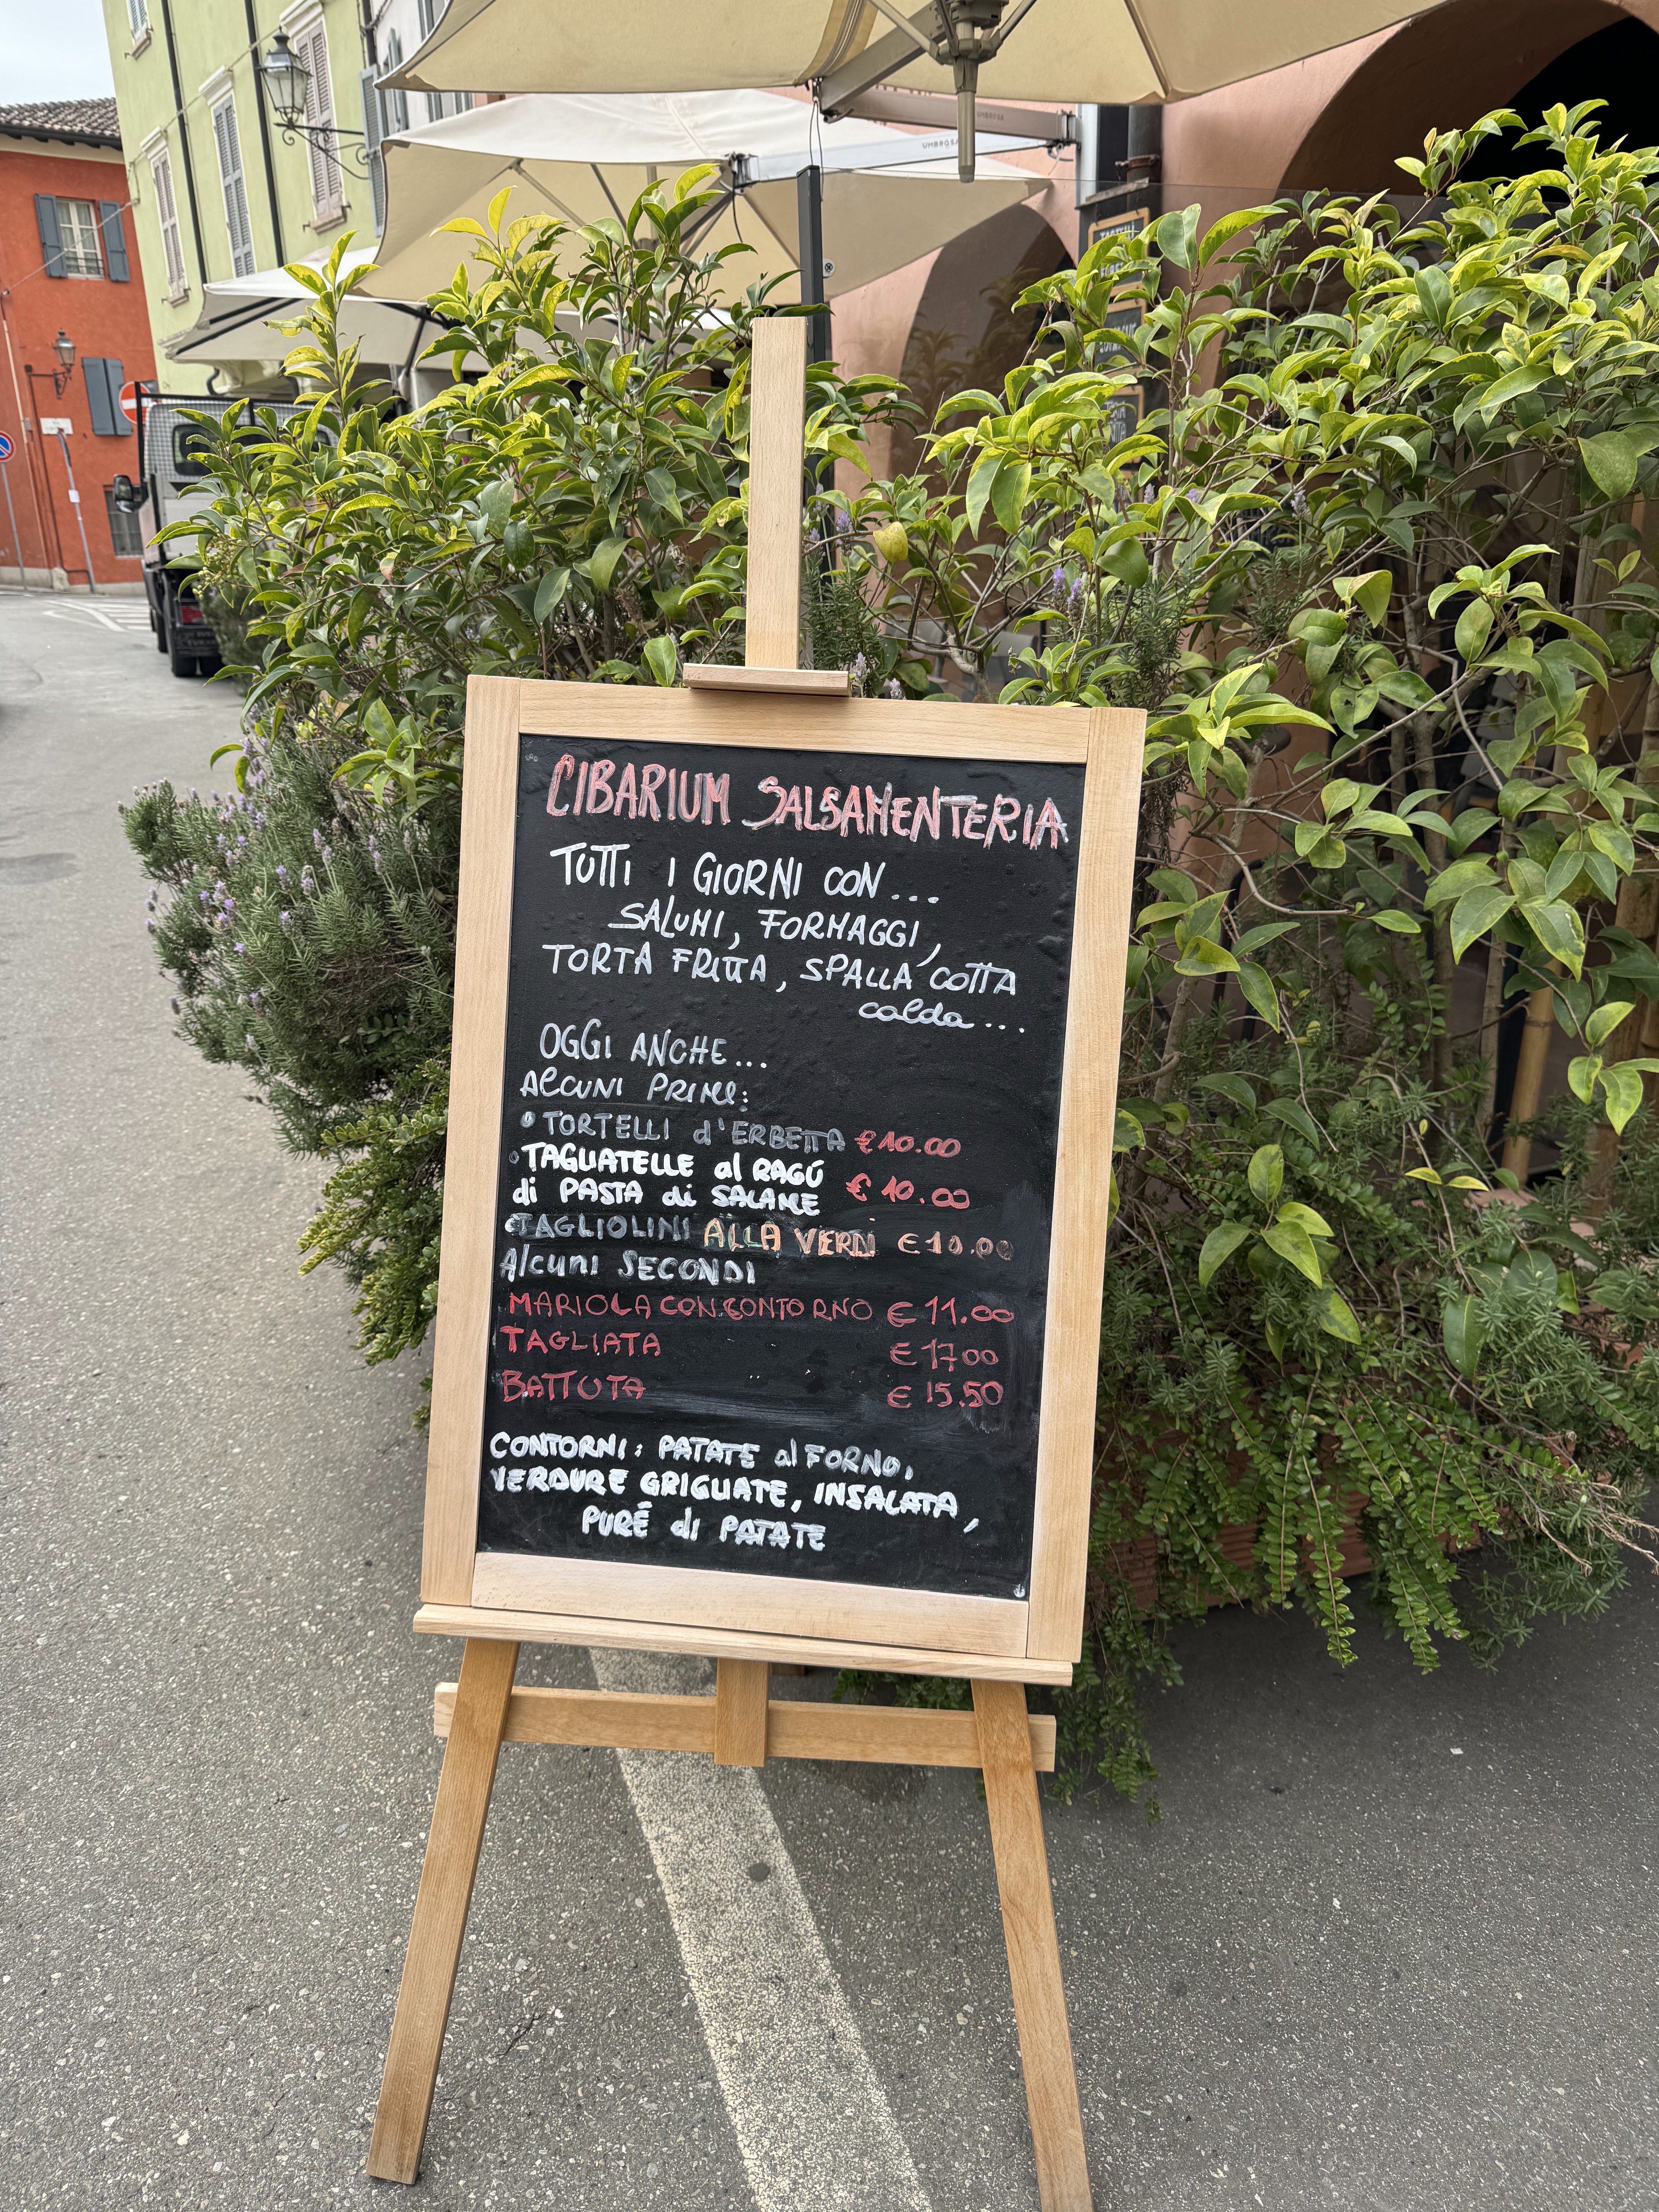 UMBROSA
CIBARIUM SALSAMENTERIA
TUTTI I GIORNI CON...
SALUMI, FORMAGGI,
TORTA FRITTA, SPALLA COTTA
calda...
OGGI ANCHE...
Alcuni PRIMI:
TORTELLI d'ERBETTA €10.00
TAGLIATELLE al RAGÚ
di PASTA di SALAME € 10.00
TAGLIOLINI ALLA VERDI €10.00
Alcuni SECONDI
MARIOLA CON CONTORNO € 11.00
TAGLIATA € 1700
BATTUTA € 15.50
CONTORNI: PATATE al FORNO,
VERDURE GRIGLIATE, INSALATA,
PURÉ di PATATE